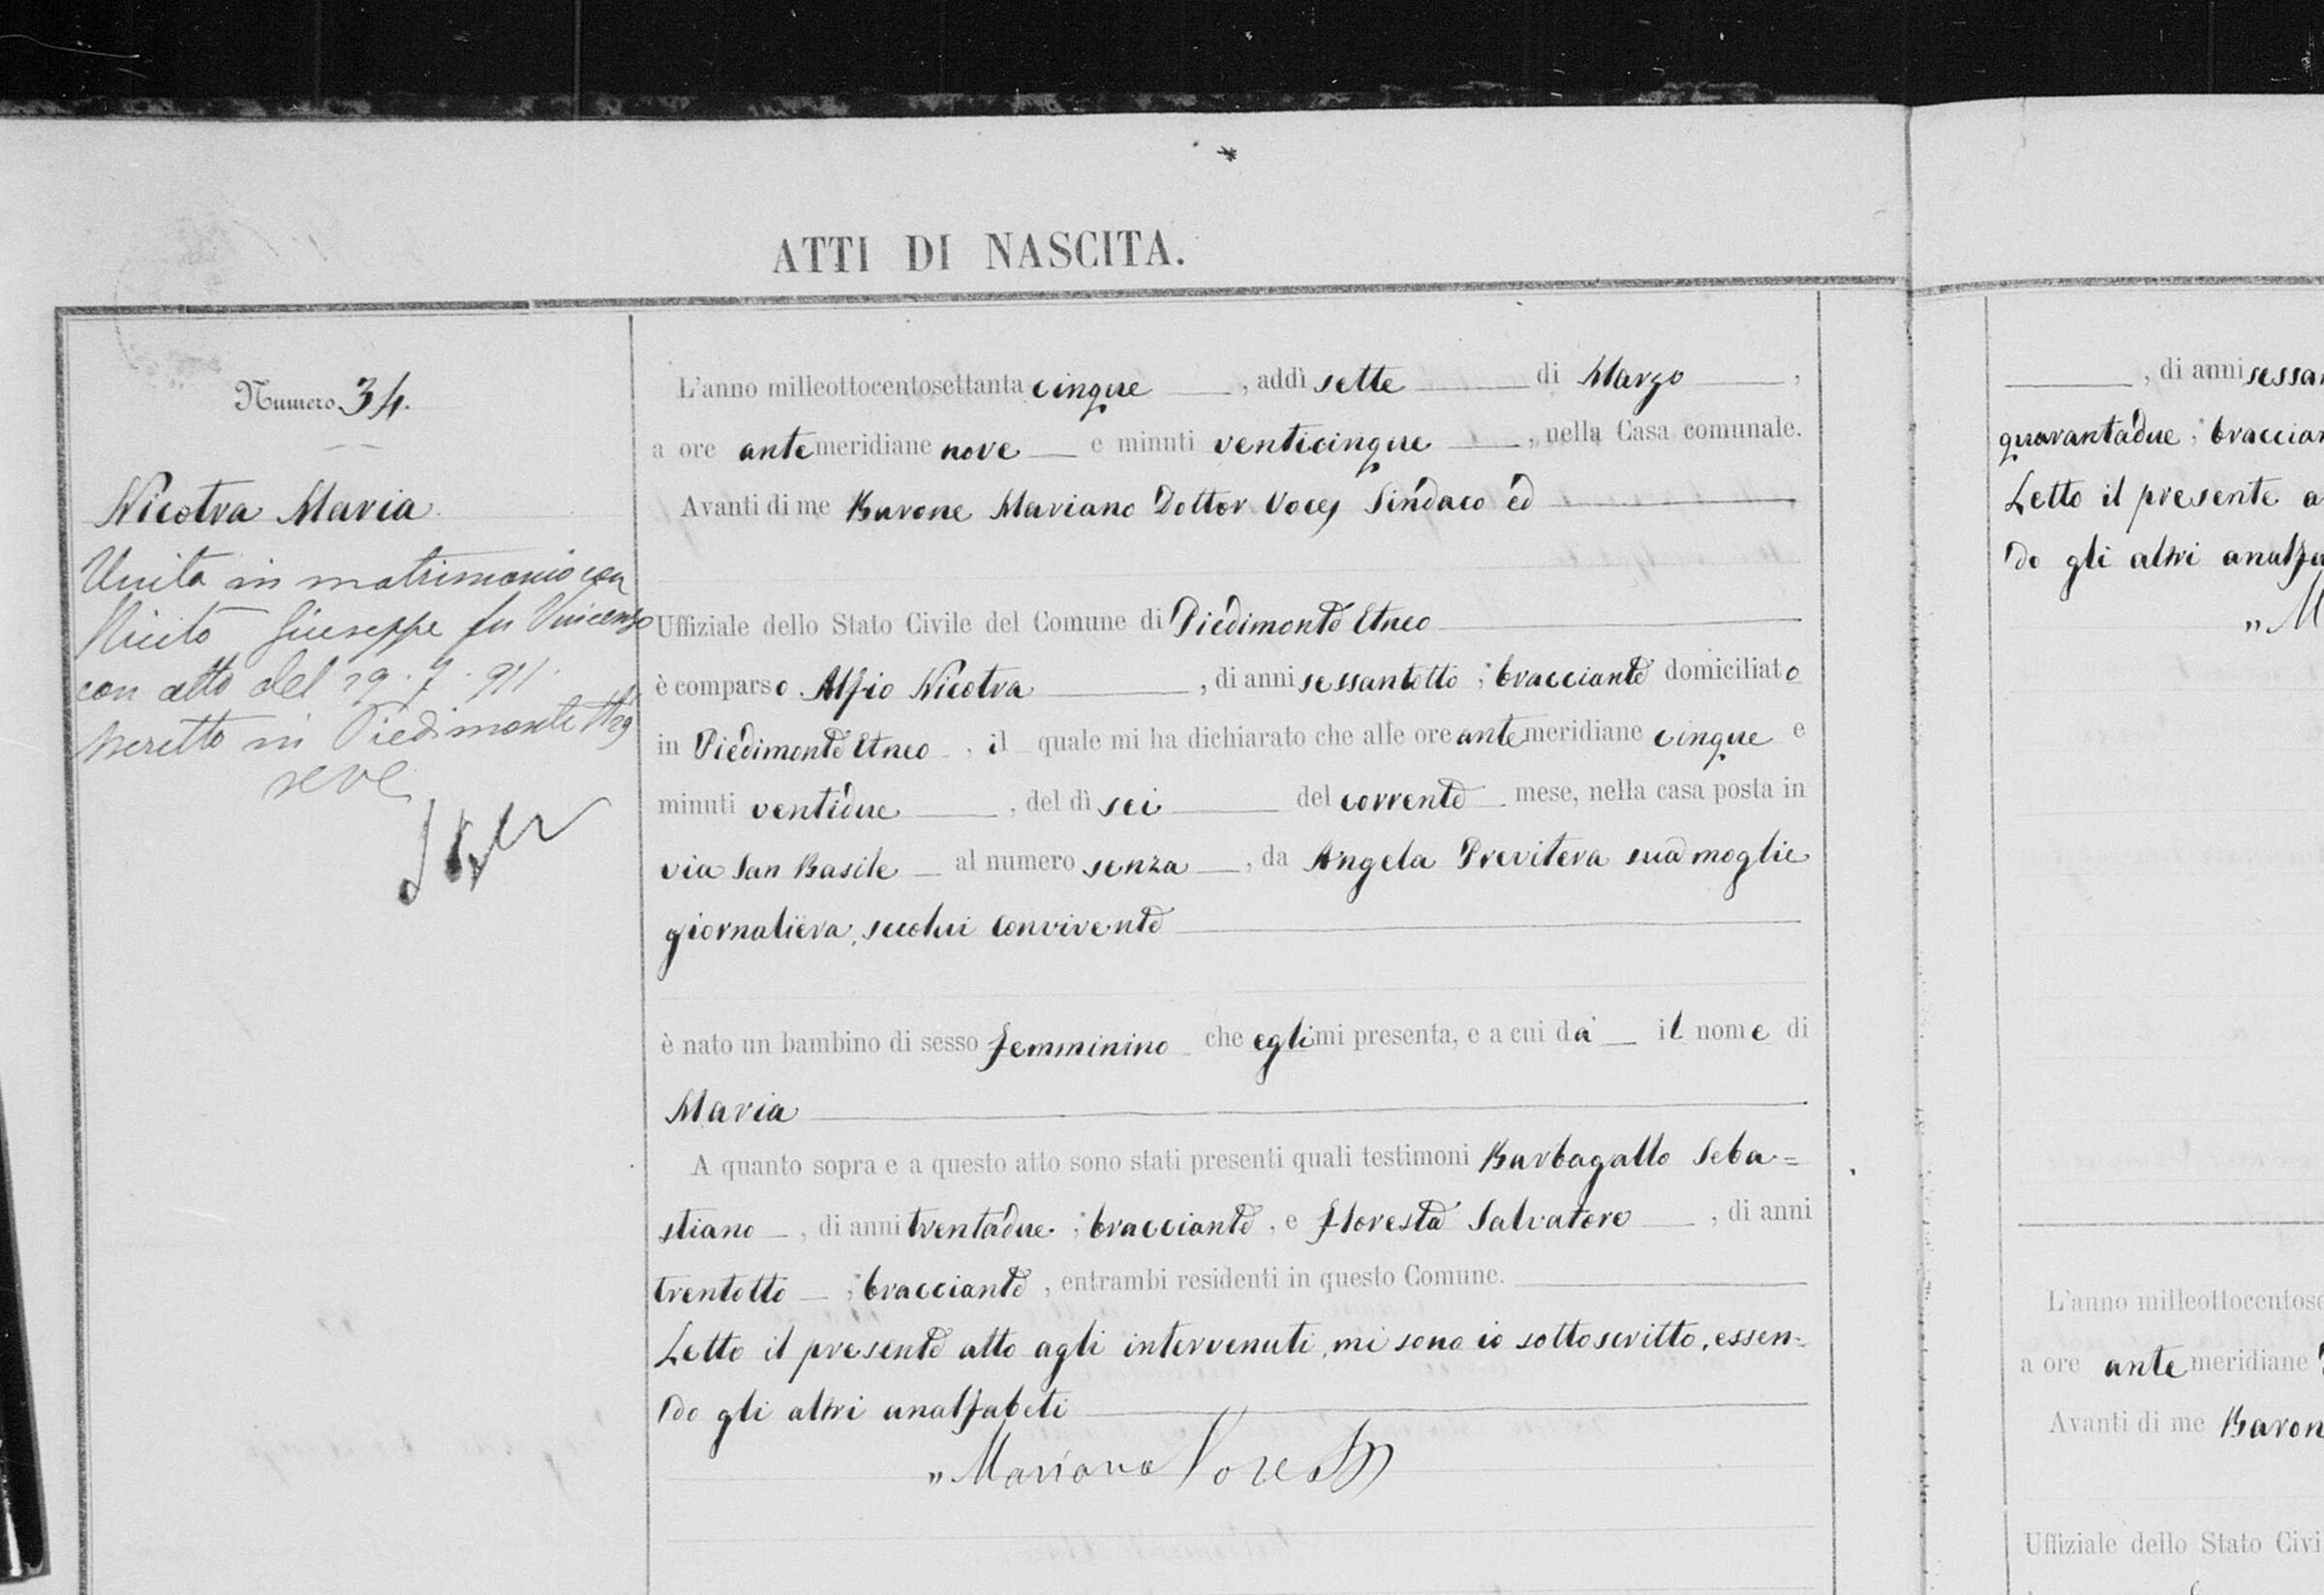 ATTI DI NASCITA.
Numero 34.
Nicotra Maria
Unita in matrimonio con
Giuseppe fu Vincenzo
con atto del 29. 7. 911.
in Piedimonte
L'anno milleottocentosettanta cinque, addì sette di Marzo,
a ore antemeridiane nove e minuti venticinque, nella Casa comunale.
Avanti di me Barone Mariano Dottor Voces Sindaco ed
Uffiziale dello Stato Civile del Comune di Piedimonte Etneo
è comparso Alfio Nicotra, di anni sessantotto, bracciante domiciliato
in Piedimonte Etneo, il quale mi ha dichiarato che alle ore antemeridiane cinque e
minuti ventidue, del dì sei del corrente mese, nella casa posta in
via San Basile al numero senza, da Angela Previtera sua moglie
giornaliera, secolui convivente
è nato un bambino di sesso femminino che egli mi presenta, e a cui dà il nome di
Maria
A quanto sopra e a questo atto sono stati presenti quali testimoni Barbagallo Seba=
stiano, di anni trentadue, bracciante, e Floresta Salvatore, di anni
trentotto, bracciante, entrambi residenti in questo Comune.
Letto il presente atto agli intervenuti, mi sono io sottoscritto, essen=
do gli altri analfabeti
„ Mariano Voces
, di anni sessan
quarantadue, braccian
Letto il presente a
do gli altri analfa
„ M
L'anno milleottocentose
a ore antemeridiane
Avanti di me Baron
Uffiziale dello Stato Civi